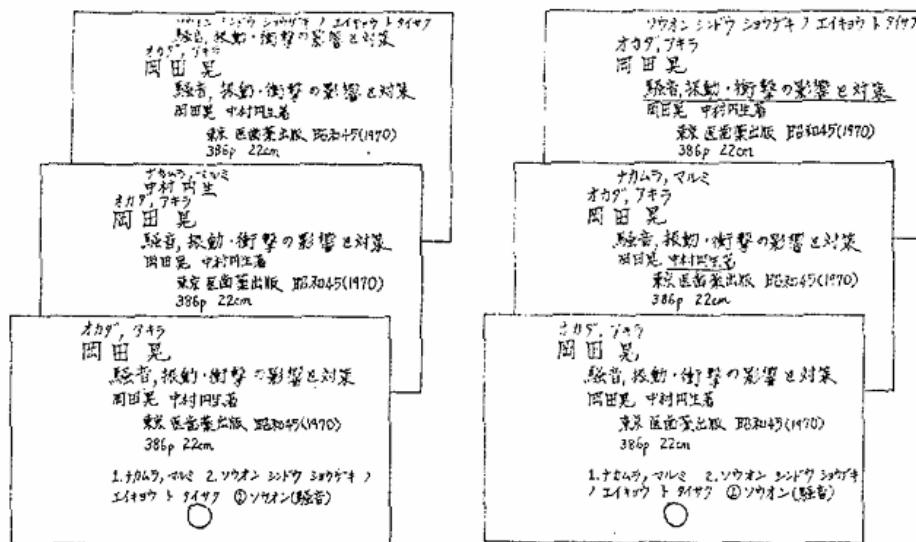 ソウオン シンドウ ショウゲキ ノ エイキョウ ト タイサク
騒音,振動・衝撃の影響と対策
オカダ,アキラ
岡田 晃
騒音,振動・衝撃の影響と対策
岡田晃 中村円生著
東京 医歯薬出版 昭和45(1970)
386p 22cm
ナカムラ,マルミ
中村 円生
オカダ,アキラ
岡田 晃
騒音,振動・衝撃の影響と対策
岡田晃 中村円生著
東京 医歯薬出版 昭和45(1970)
386p 22cm
オカダ,アキラ
岡田 晃
騒音,振動・衝撃の影響と対策
岡田晃 中村円生著
東京 医歯薬出版 昭和45(1970)
386p 22cm
1.ナカムラ,マルミ 2.ソウオン シンドウ ショウゲキ ノ
エイキョウ ト タイサク ①ソウオン(騒音)
ソウオン シンドウ ショウゲキ ノ エイキョウ ト タイサク
オカダ,アキラ
岡田 晃
騒音,振動・衝撃の影響と対策
岡田晃 中村円生著
東京 医歯薬出版 昭和45(1970)
386p 22cm
ナカムラ,マルミ
オカダ,アキラ
岡田 晃
騒音,振動・衝撃の影響と対策
岡田晃 中村円生著
東京 医歯薬出版 昭和45(1970)
386p 22cm
オカダ,アキラ
岡田 晃
騒音,振動・衝撃の影響と対策
岡田晃 中村円生著
東京 医歯薬出版 昭和45(1970)
386p 22cm
1.ナカムラ,マルミ 2.ソウオン シンドウ ショウゲキ
ノ エイキョウ ト タイサク ①ソウオン(騒音)